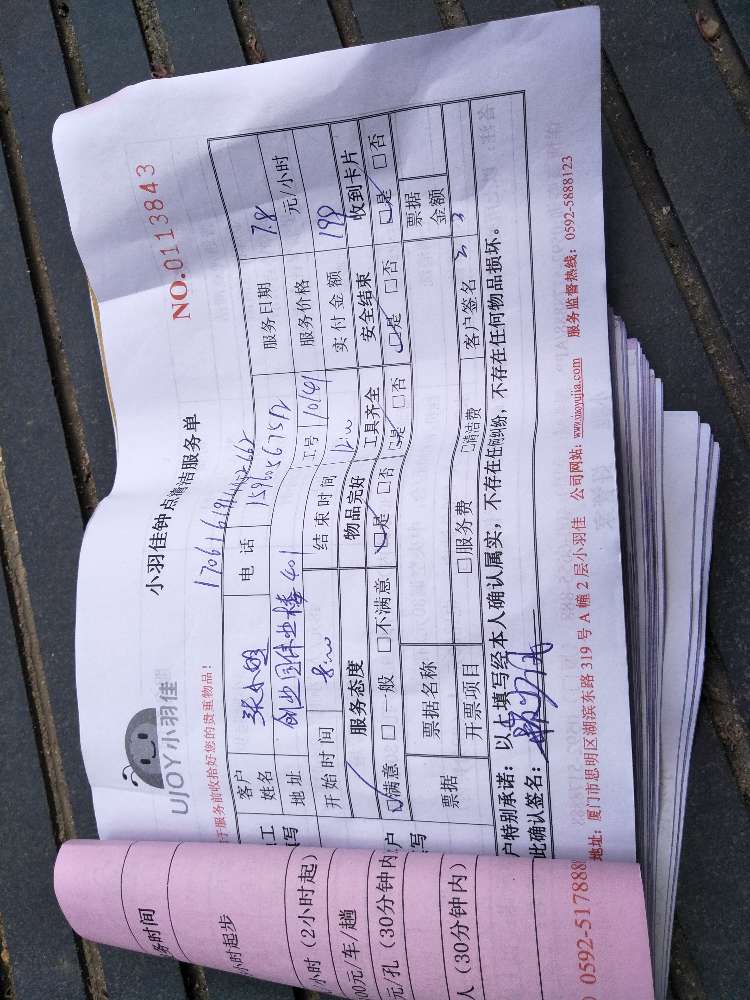 UJOY小羽佳
小羽佳钟点清洁服务单
NO.0113843
于服务前收拾好您的贵重物品！
客户姓名 电话 服务日期 7.8
地址 创业园伟业楼401 工号 10149 服务价格 元/小时
开始时间 8:00 结束时间 12:00 实付金额 198
服务态度 物品完好 工具齐全 安全结束 收到卡片
满意 一般 不满意 是 否 是 否 是 否 是 否
票据 票据名称 票据金额
开票项目 服务费 清洁费 客户签名
户特别承诺：以上填写经本人确认属实，不存在任何纠纷，不存在任何物品损坏。
此确认签名：
地址：厦门市思明区湖滨东路319号A幢2层小羽佳 公司网站：www.xiaoyujia.com 服务监督热线：0592-5888123
务时间
小时起步
小时（2小时起）
00元/车/趟
元/孔（30分钟内
人（30分钟内）
0592-517888